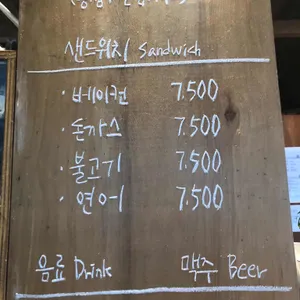 샌드위치 Sandwich
· 베이컨 7.500
· 돈까스 7.500
· 불고기 7.500
· 연어 7.500
음료 Drink 맥주 Beer